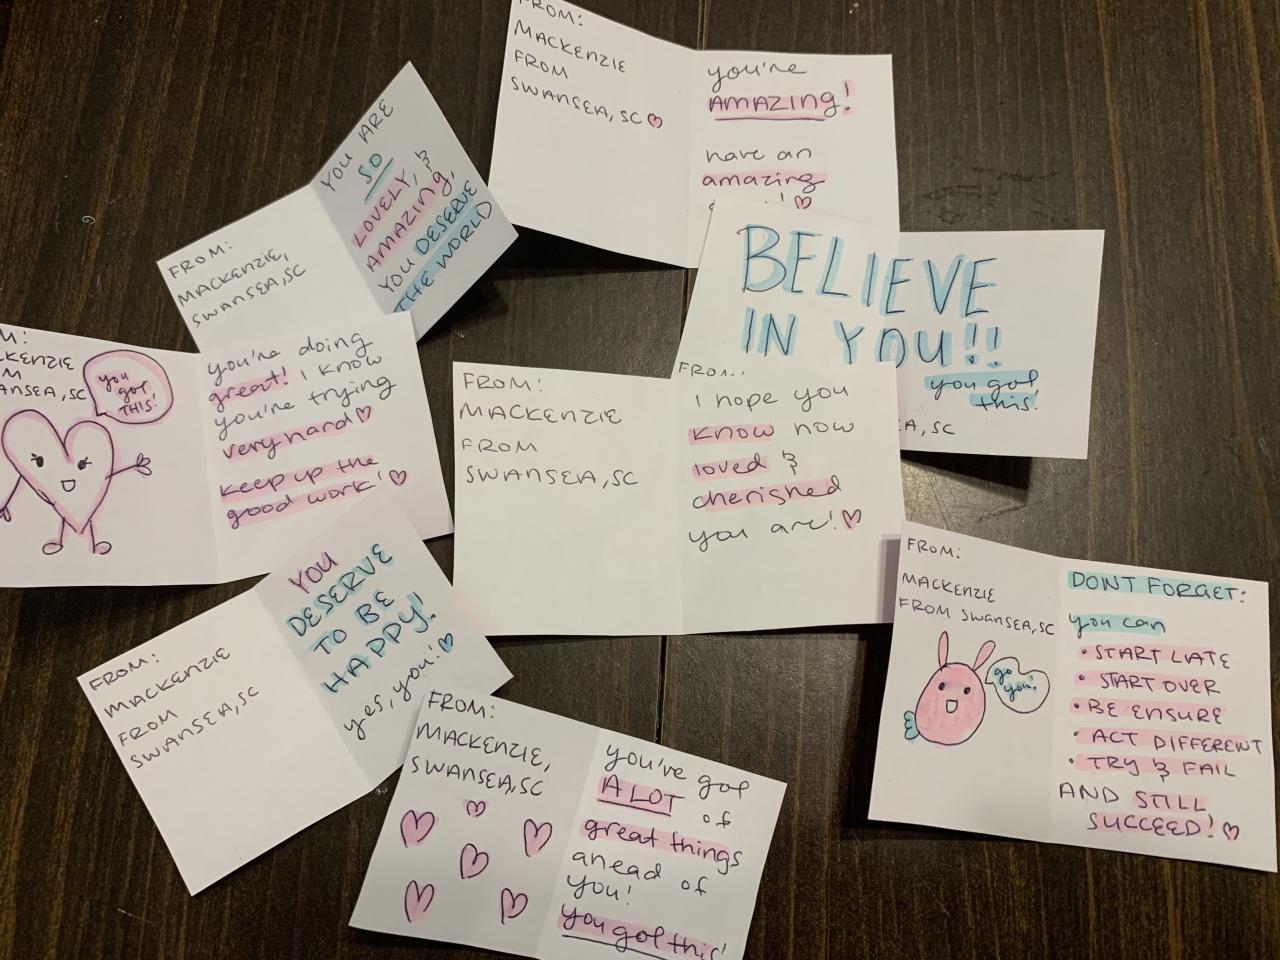 FROM:
MACKENZIE
FROM
SWANSEA, SC ♡
you're
AMAZING!
have an
amazing
YOU ARE
SO
LOVELY, &
AMAZING,
YOU DESERVE
THE WORLD
FROM:
MACKENZIE,
SWANSEA, SC
BELIEVE
IN YOU!!
you got
this!
FROM:
EA, SC
M:
CKENZIE
M
ANSEA, SC
you
got
THIS!
you're doing
great! I know
you're trying
very hard ♡
keep up the
good work! ♡
FROM:
MACKENZIE
FROM
SWANSEA, SC
I hope you
know how
loved &
cherished
you are! ♡
FROM:
MACKENZIE
FROM SWANSEA, SC
go
you!
DONT FORGET:
you can
• START LATE
• START OVER
• BE ENSURE
• ACT DIFFERENT
• TRY & FAIL
AND STILL
SUCCEED! ♡
FROM:
MACKENZIE
FROM
SWANSEA, SC
YOU
DESERVE
TO BE
HAPPY!
yes, you! ♡
FROM:
MACKENZIE,
SWANSEA, SC
you've got
A LOT of
great things
ahead of
you!
you got this!